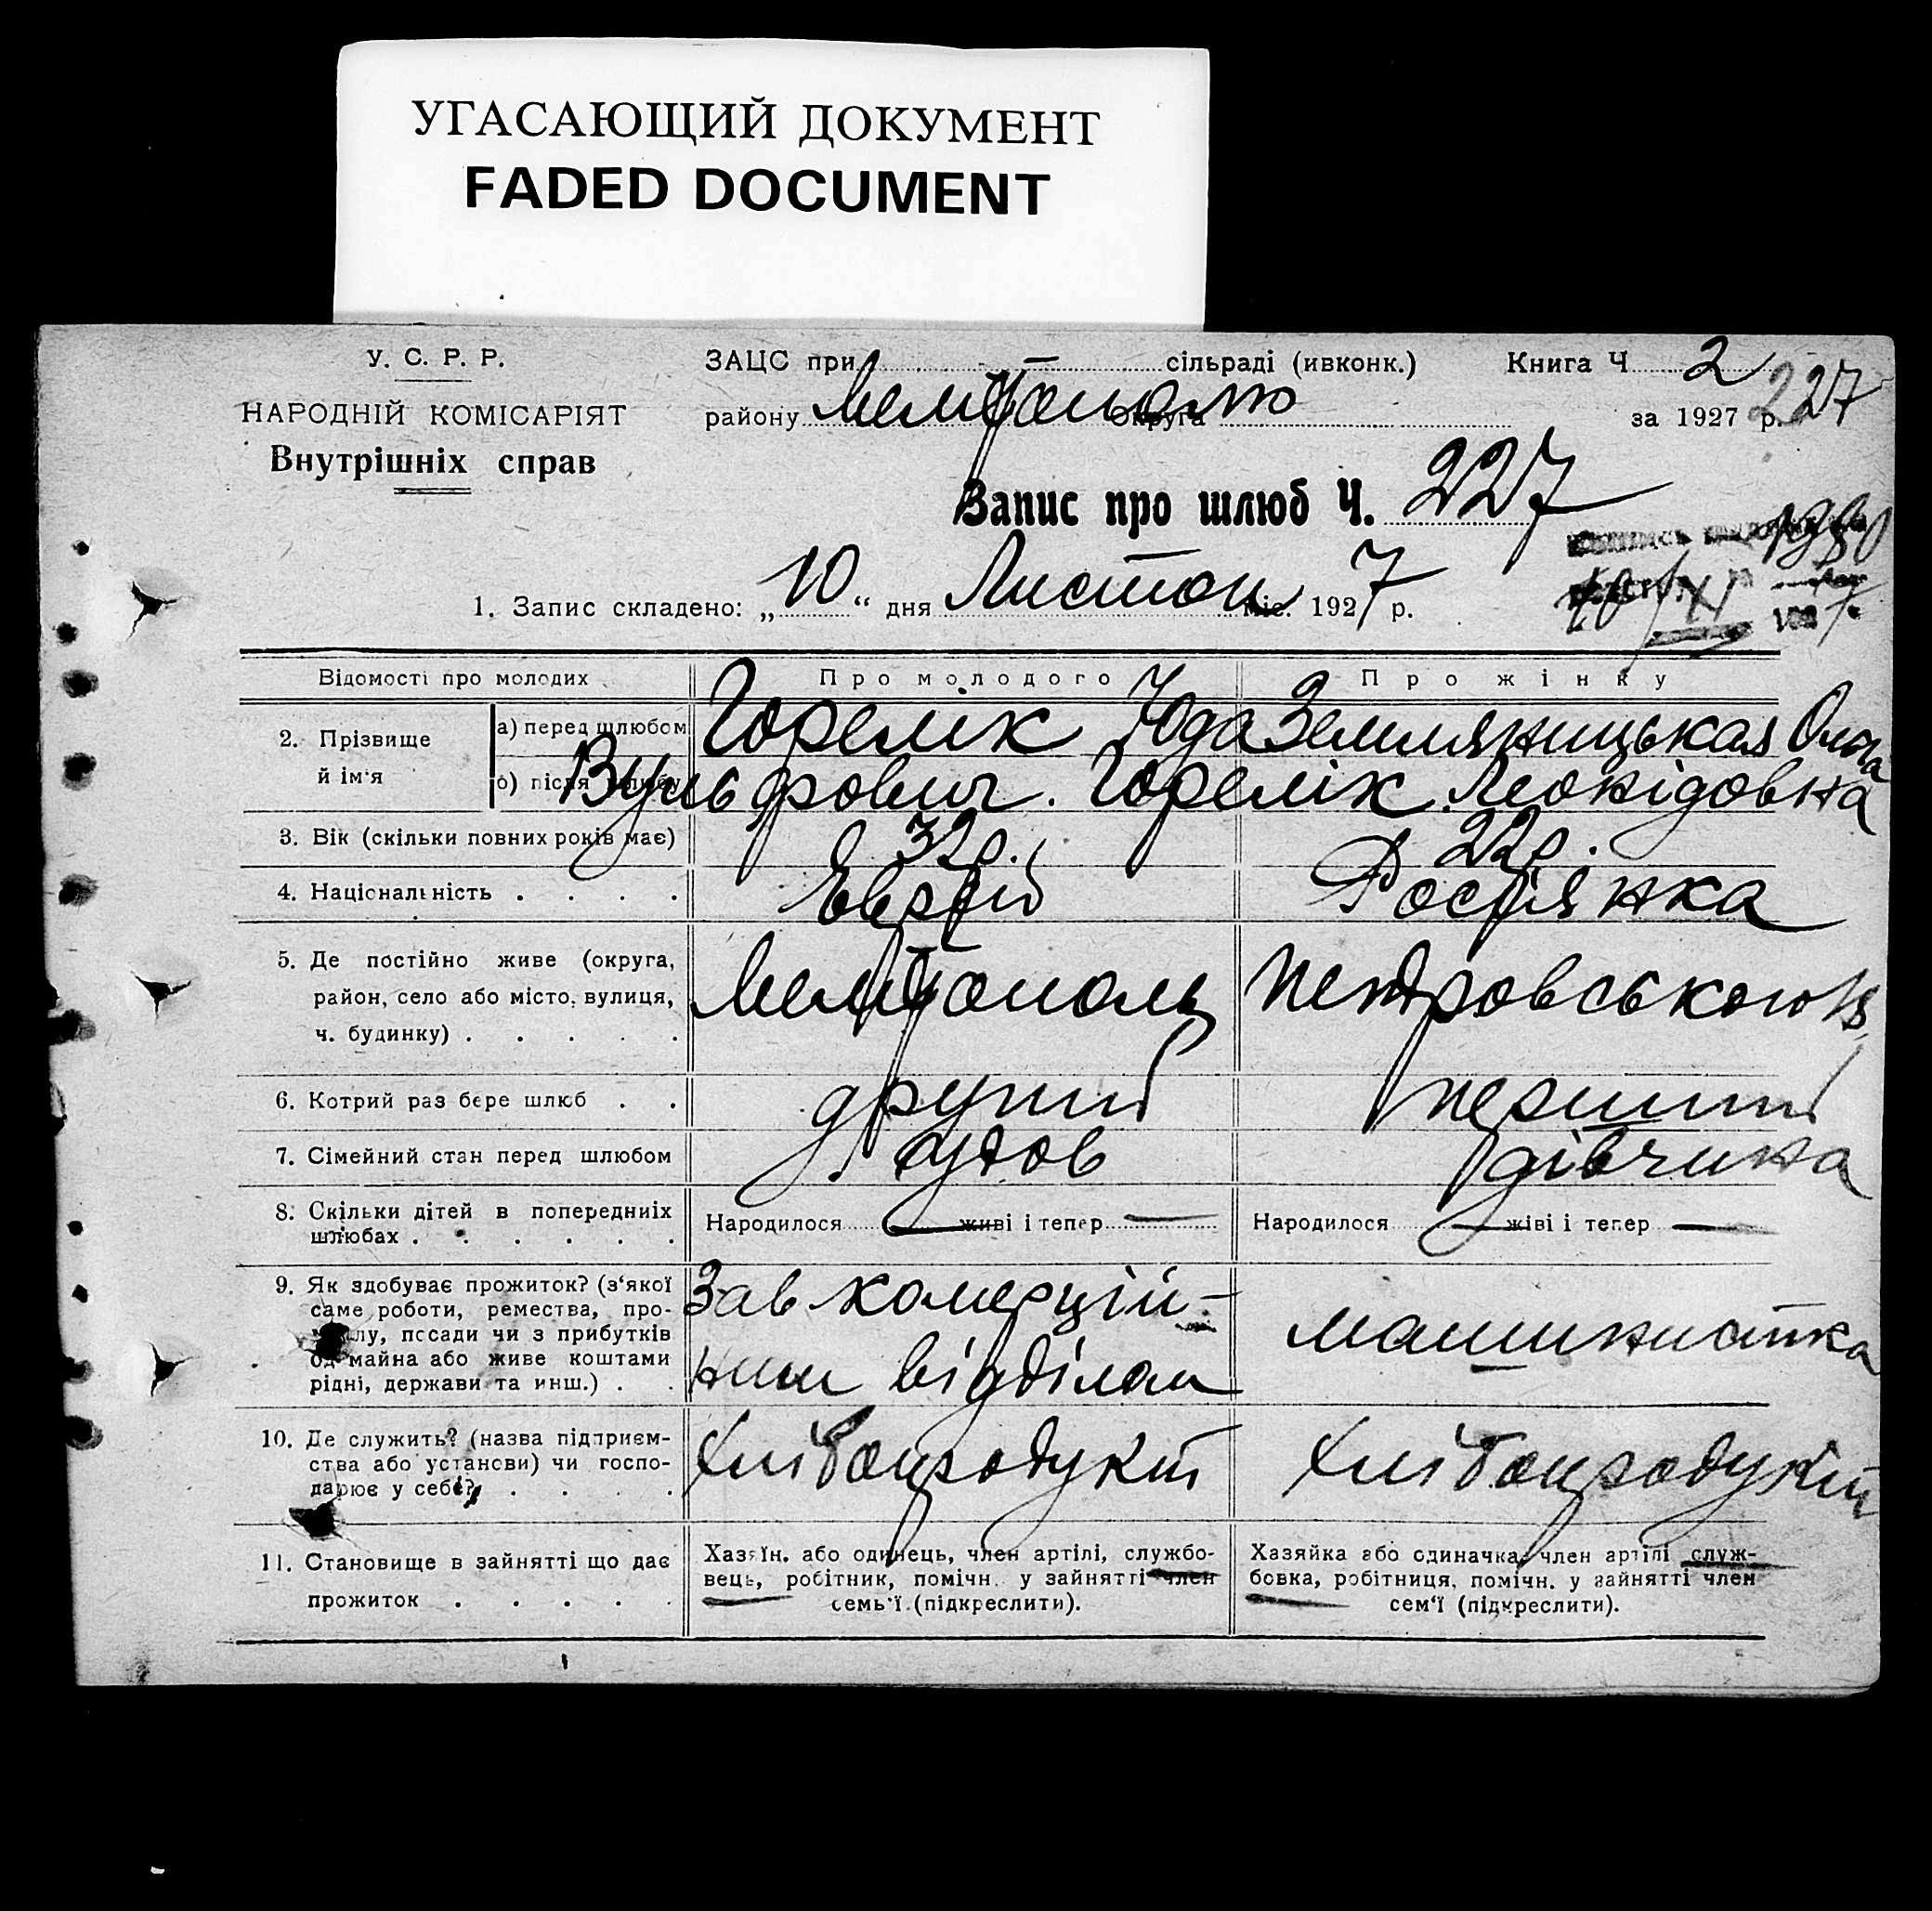 УГАСАЮЩИЙ ДОКУМЕНТ
FADED DOCUMENT
У. С. Р. Р.
НАРОДНІЙ КОМІСАРІЯТ
Внутрішніх справ
ЗАЦС при — сільраді (ивконк.) Книга Ч 2
району Мелітополю округа за 1927 р. 227
Запис про шлюб Ч. 227
1. Запис складено: „10“ дня Листоп міс. 1927 р.
10/XI
Відомості про молодих Про молодого Про жінку
2. Прізвище й ім'я
а) перед шлюбом Горелік Юда Земляницькая Ольга
б) після шлюбу Вульфович. Горелік. Леонідовна
3. Вік (скільки повних років має) 32 р. 22 р.
4. Національність . . . . Еврей Росіянка
5. Де постійно живе (округа,
район, село або місто, вулиця,
ч. будинку) . . . . .
Мелітополь Петровського
6. Котрий раз бере шлюб . . другий перший
7. Сімейний стан перед шлюбом удов дівчина
8. Скільки дітей в попередніх
шлюбах . . . . . .
Народилося — живі і тепер — Народилося — жіві і тепер —
9. Як здобуває прожиток? (з'якої
саме роботи, ремества, про-
мислу, посади чи з прибутків
од майна або живе коштами
рідні, держави та инш.) . .
Зав комерцій-
ним відділом
машинистка
10. Де служить? (назва підприєм-
ства або установи) чи госпо-
дарює у себе? . . . .
Хлібопродукт Хлібопродукт
11. Становище в зайнятті що дає
прожиток . . . . .
Хазяїн. або одинець, член артілі, службо-
вець, робітник, помічн. у зайнятті член
семь'ї (підкреслити).
Хазяйка або одиначка, член артілі служ-
бовка, робітниця, помічн. у зайнятті член
сем'ї (підкреслити).